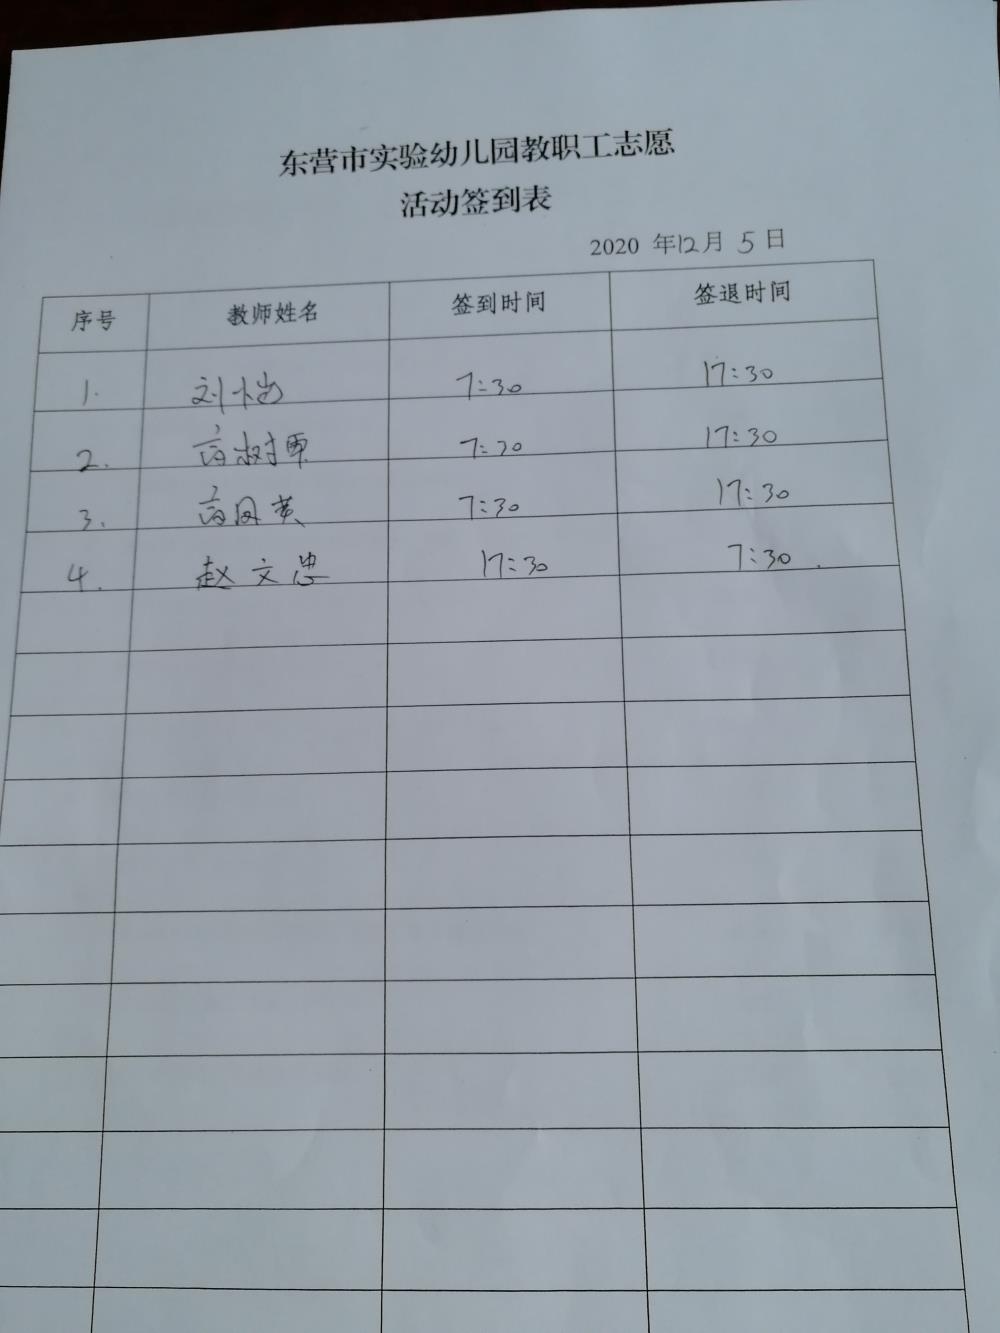 东营市实验幼儿园教职工志愿
活动签到表
2020 年12月 5 日
序号 教师姓名 签到时间 签退时间
1. 刘 7:30 17:30
2. 树 7:30 17:30
3. 英 7:30 17:30
4. 赵文忠 17:30 7:30